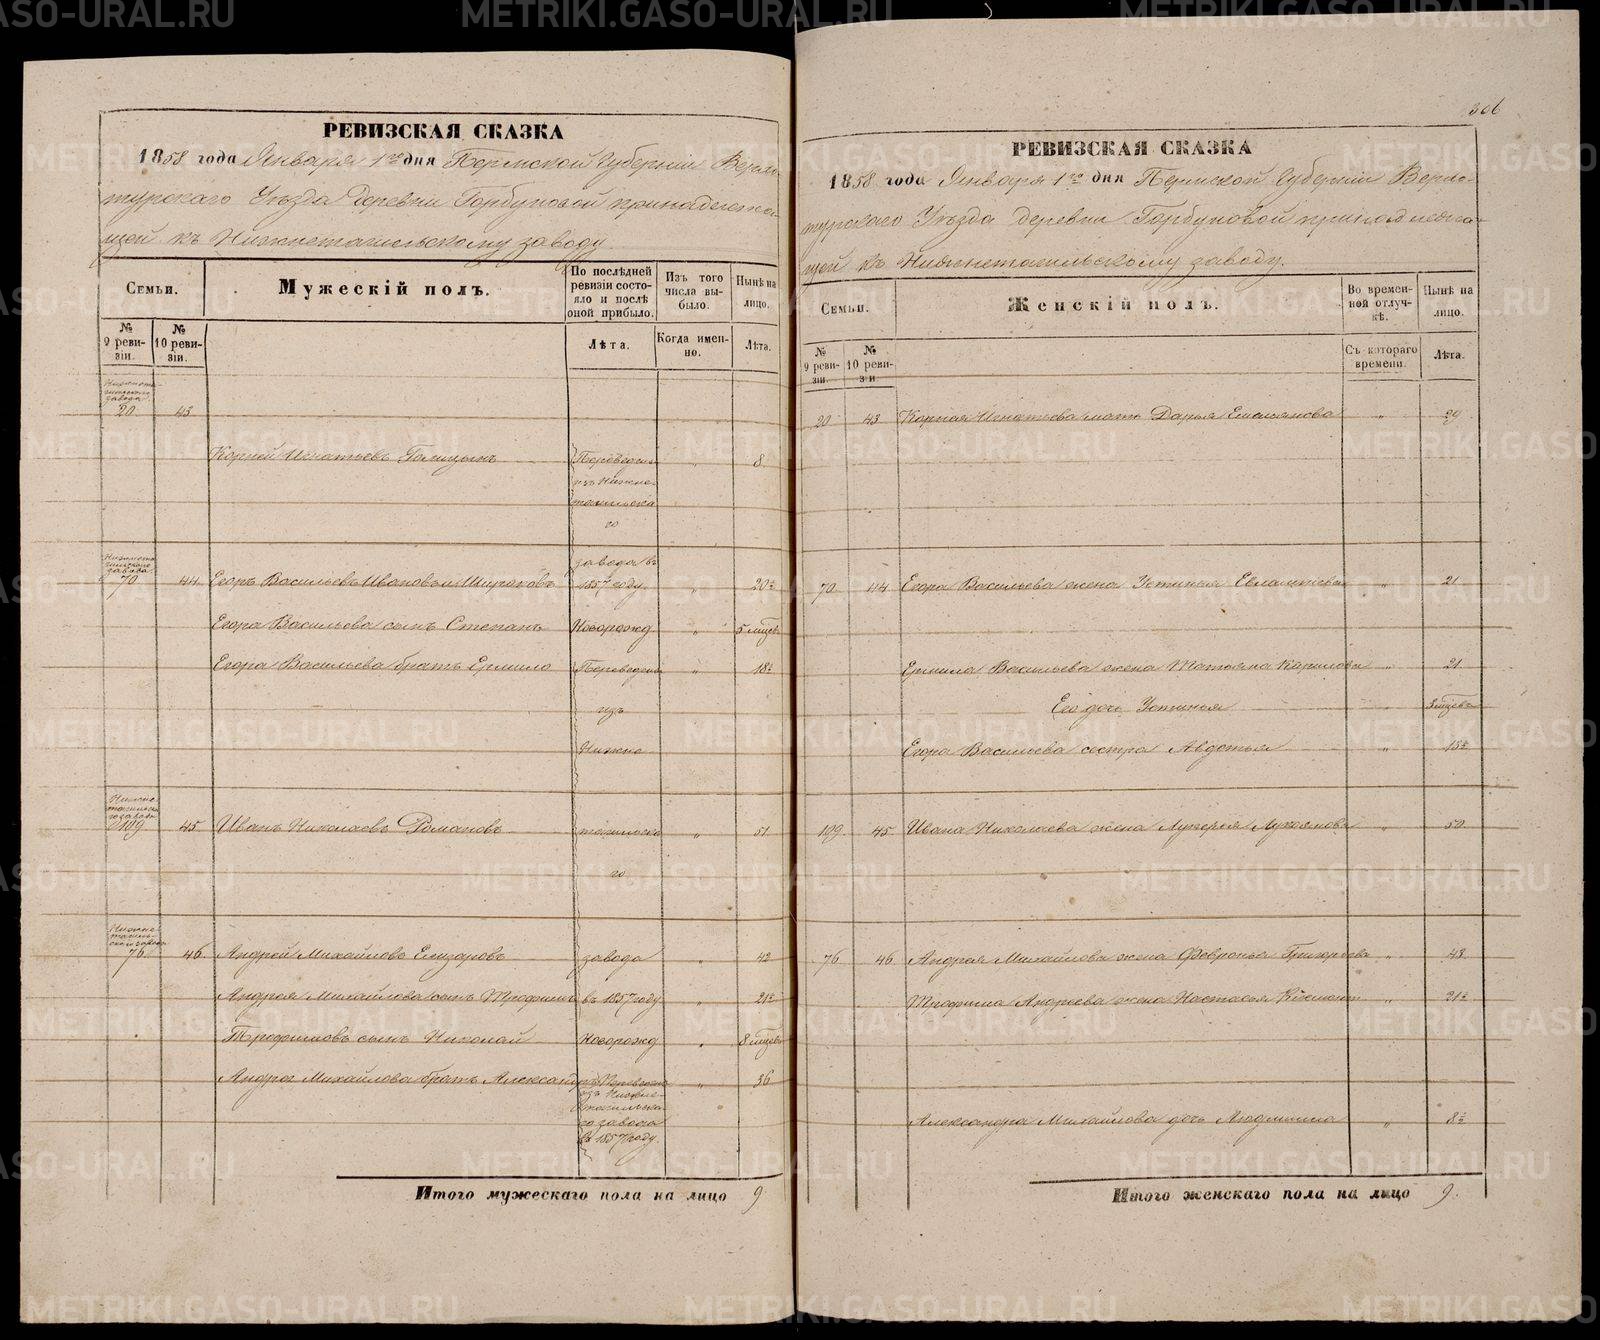 306
РЕВИЗСКАЯ СКАЗКА
1858 года Января 1го дня Пермской Губерніи Верхо-
турскаго Уѣзда деревни Горбуновой принадлежа-
щей къ Нижнетагильскому заводу
Семьи.
Мужескій полъ.
По послѣдней ревизіи состо-
яло и послѣ оной прибыло.
Изъ того числа вы-
было.
Нынѣ на лицо.
№ 9 реви-
зіи.
№ 10 реви-
зіи.
Лѣта.
Когда имен-
но.
Лѣта.
Нижнета
гильскаго
завода
20 43
Корней Игнатьевъ Голицынъ Переведен „ 8
изъ Нижне
тагильска
го
Нижнета
гильскаго
завода
завода въ
70 44 Егоръ Васильевъ Ивановъ и Широковъ 1857 году „ 20½
Егора Васильева сынъ Степанъ Новорожд „ 5 мцевъ
Егора Васильева братъ Ермило Переведен „ 18½
изъ
Нижне
Нижне
тагильска
го завода
109 45 Иванъ Николаевъ Романовъ тагильска „ 51
го
Нижне
тагиль-
скаго завода
76 46 Андрей Михайловъ Елизаровъ завода „ 42
Андрея Михайлова сынъ Трофимъ въ 1857 году „ 21½
Трофимовъ сынъ Николай Новорожд „ 8 мцевъ
Андрея Михайлова братъ Александръ Переведенъ „ 36
изъ Нижне-
тагильска
го завода
въ 1857 году.
Итого мужескаго пола на лицо 9
РЕВИЗСКАЯ СКАЗКА
1858 года Января 1го дня Пермской Губерніи Верхо-
турскаго Уѣзда деревни Горбуновой принадлежа-
щей къ Нижнетагильскому заводу.
Семьи.
Женскій полъ.
Во времен-
ной отлуч-
кѣ.
Нынѣ на лицо.
№ 9 реви-
зіи.
№ 10 реви-
зіи
Съ котораго времени.
Лѣта.
20 43 Корнея Игнатьева мать Дарья Емельянова „ 29
70 44 Егора Васильева жена Устинья Евлампіева „ 21
Ермила Васильева жена Татьяна Карилова „ 21
Его дочь Устинья 3 мцевъ
Егора Васильева сестра Авдотья „ 15½
109 45 Ивана Николаева жена Лукерья Лукоянова „ 50
76 46 Андрея Михайлова жена Февронья Григорьева „ 43
Трофима Андреева жена Настасья „ 21½
Александра Михайлова дочь Людмила „ 8½
Итого женскаго пола на лицо 9.
METRIKI.GASO-URAL.RU